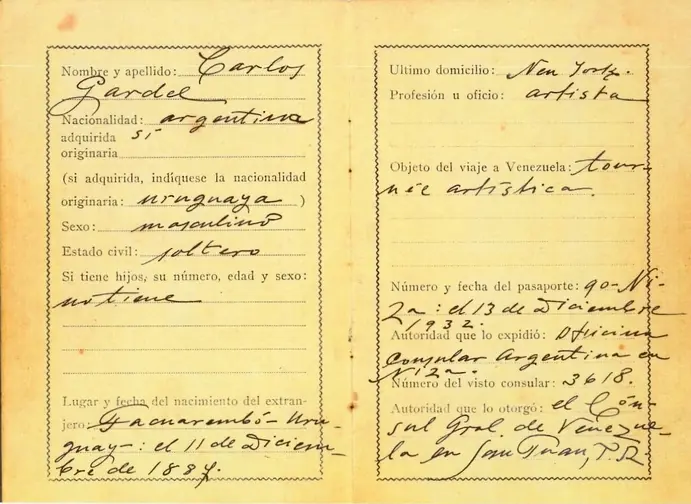 Nombre y apellido: Carlos
Gardel
Nacionalidad: argentina
adquirida sí
originaria
(si adquirida, indíquese la nacionalidad
originaria: uruguaya )
Sexo: masculino
Estado civil: soltero
Si tiene hijos, su número, edad y sexo:
no tiene
Lugar y fecha del nacimiento del extran-
jero: Tacuarembó - Uru-
guay-: el 11 de Diciem-
bre de 1887.
Ultimo domicilio: New York.
Profesión u oficio: artista
Objeto del viaje a Venezuela: tour-
née artistica.
Número y fecha del pasaporte: 90-Ni-
za: el 13 de Diciembre
1932.
Autoridad que lo expidió: Oficina
Consular Argentina en
Niza.
Número del visto consular: 3618.
Autoridad que lo otorgó: el Cón-
sul Gral. de Venezue-
la en San Juan, P.R.